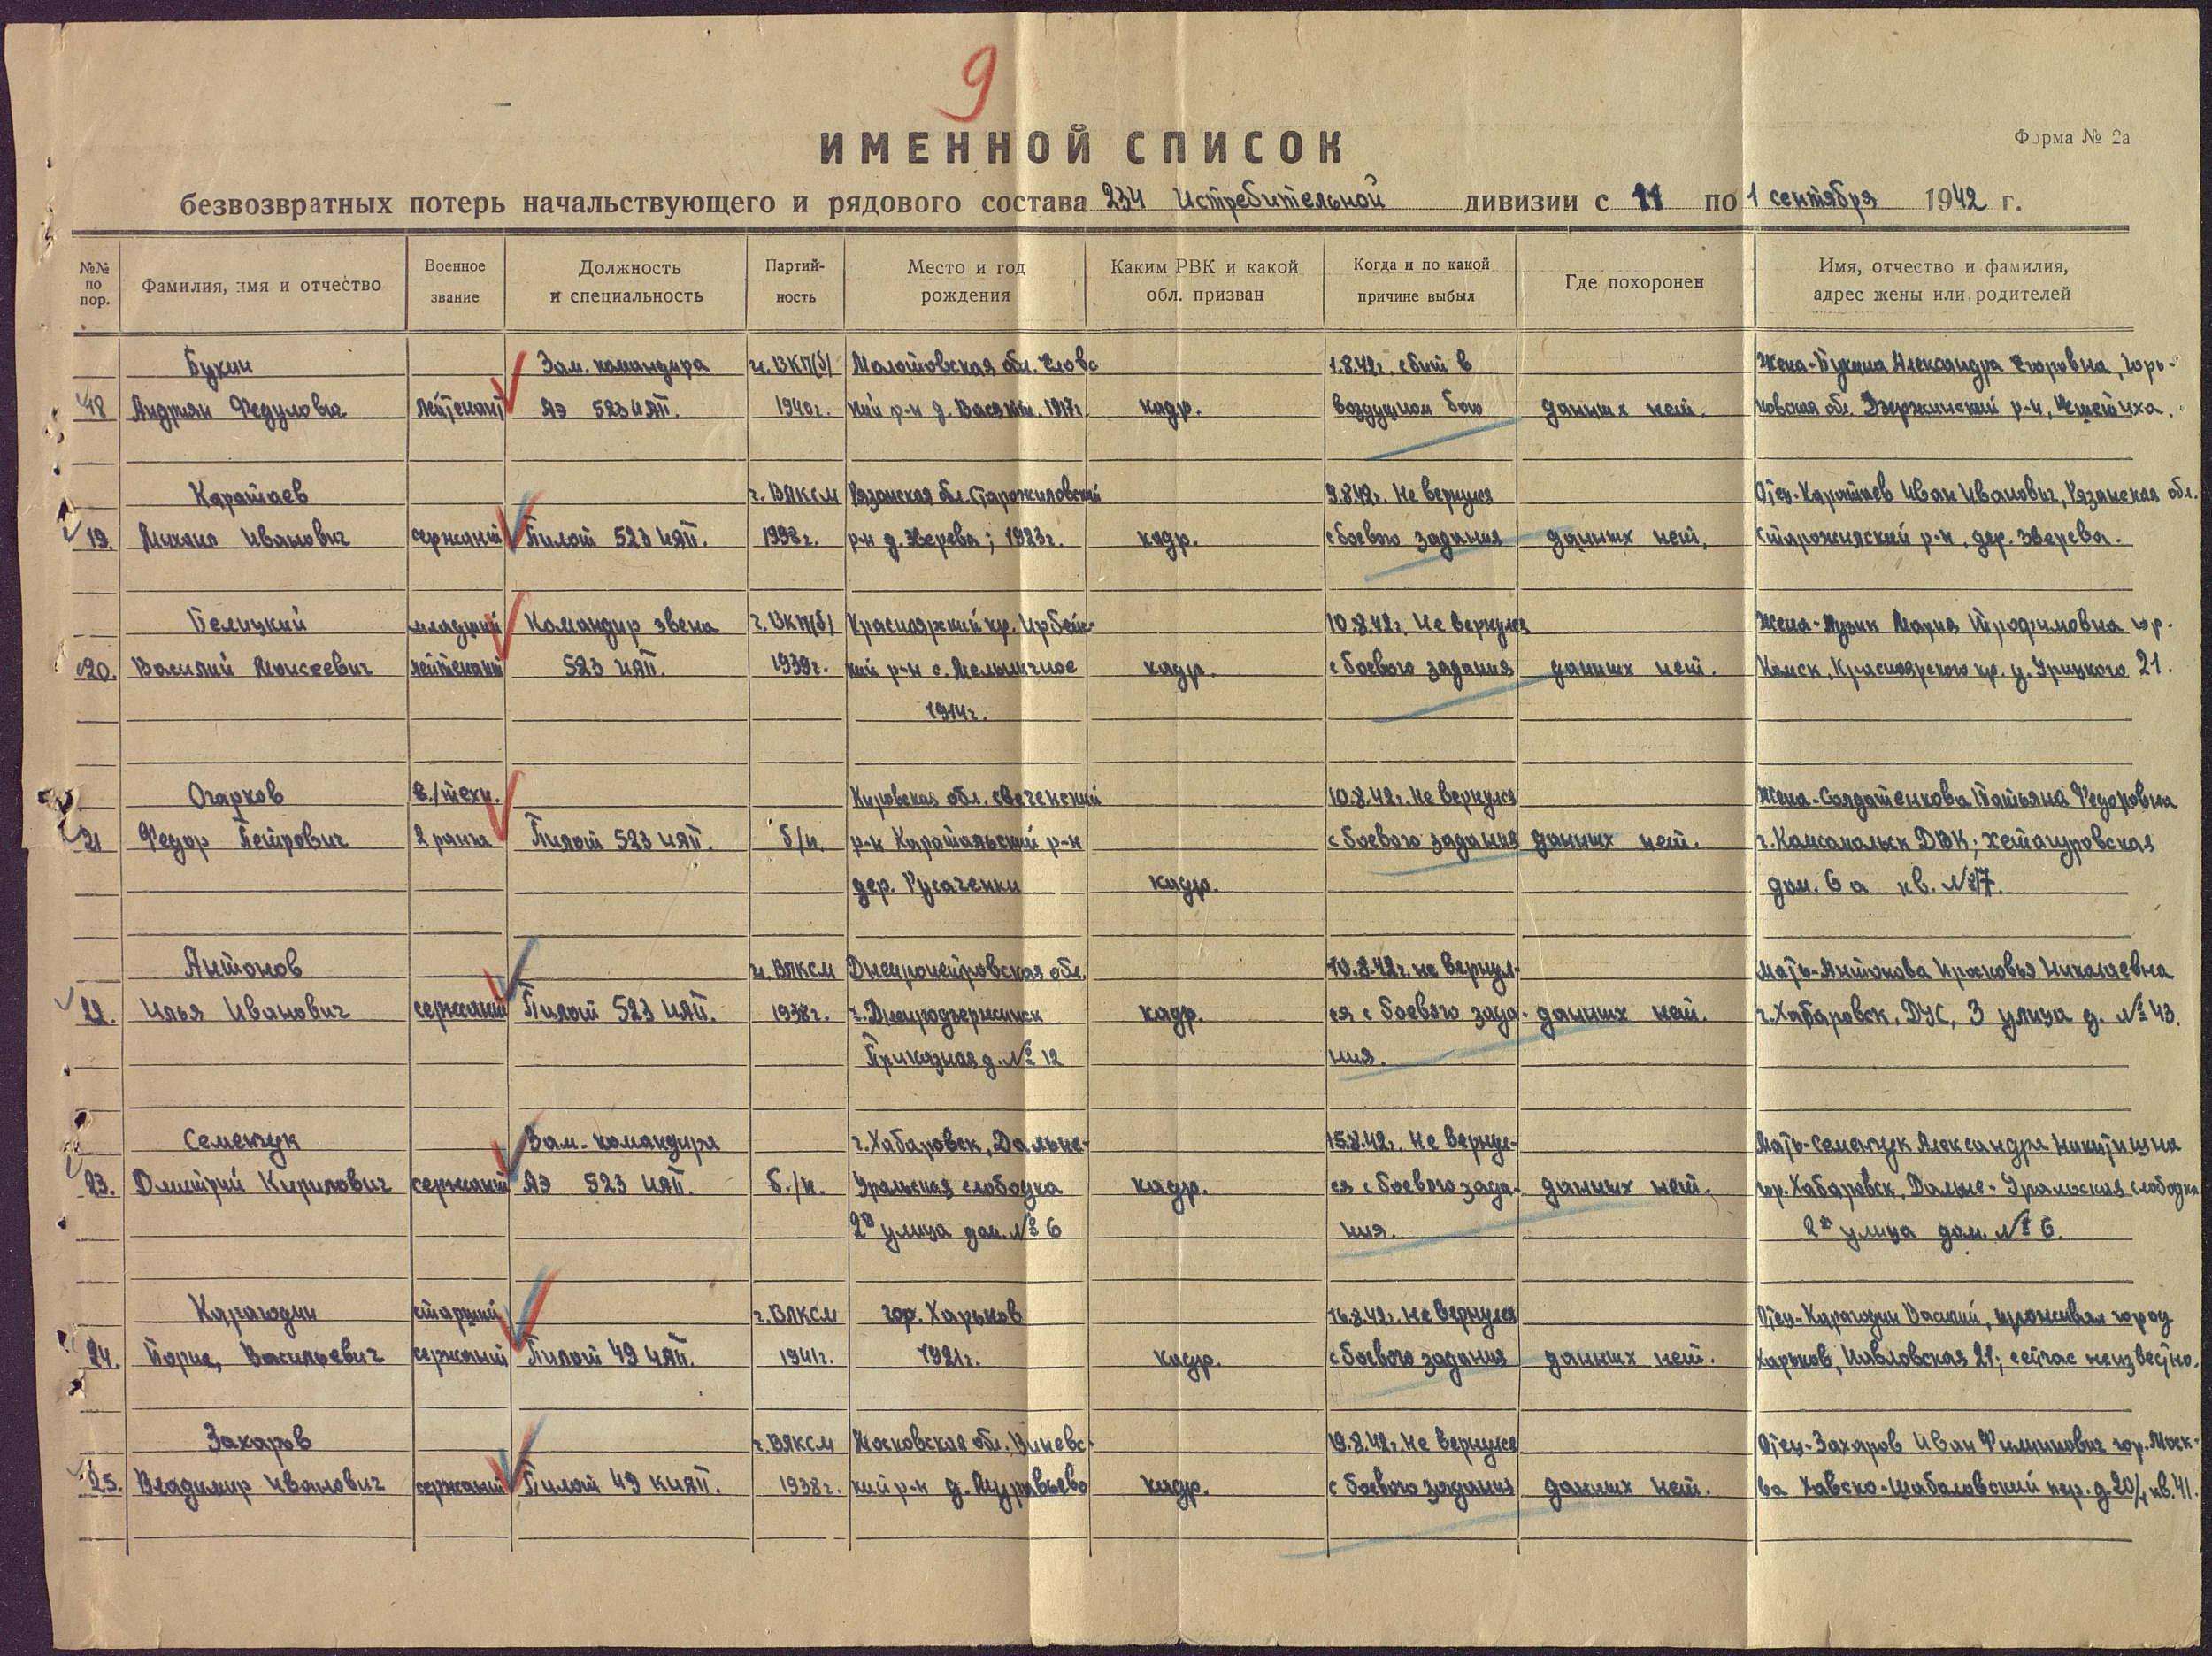 9
ИМЕННОЙ СПИСОК
Форма № 2а
безвозвратных потерь начальствующего и рядового состава 234 Истребительной дивизии с 11 по 1 сентября 1942 г.
№№ по пор.
Фамилия, имя и отчество
Военное звание
Должность и специальность
Партий-ность
Место и год рождения
Каким РВК и какой обл. призван
Когда и по какой причине выбыл
Где похоронен
Имя, отчество и фамилия, адрес жены или родителей
Букин Зам. командира ч. ВКП(б) Молотовская обл. Еловс 1.8.42г. сбит в Жена-Букина Александра Егоровна, Горь-
18 Андриян Федулович лейтенант АЭ 523 ИАП. 1940г. кий р-н д. 1917г. кадр. воздушном бою данных нет. ковская обл. Дзержинский р-н,
Каратаев ч. ВЛКСМ Рязанская обл. Старожиловский 9.8.42г. Не вернулся Отец-Каратаев Иван Иванович, Рязанская обл.
19. Иванович сержант Пилот 523 ИАП. 1938г. р-н д. Зверева; 1923г. кадр. с боевого задания данных нет. Старожилский р-н, дер. Зверева.
Белицкий младший Командир звена ч. ВКП(б) Красноярский кр. Ирбейс- 10.8.42г. Не вернулся Жена- Мария Трофимовна гор.
20. Василий Моисеевич лейтенант 523 ИАП. 1939г. кий р-н с. Мельничное кадр. с боевого задания данных нет. Канск, Красноярского кр. у. Урицкого 21.
1914г.
Огарков в./техн. Кировская обл. Свеченский 10.8.42г. Не вернулся Жена-Солдатенкова Татьяна Федоровна
21 Федор Петрович 2 ранга Пилот 523 ИАП. б/п. р-н р-н с боевого задания данных нет. г. Камсамольск ДВК; Хетагуровская
дер. Русаченки кадр. дом. 6а кв. №17.
Антонов ч. ВЛКСМ Днепропетровская обл. 10.8.42г. не вернул- Мать-Антонова Просковья Николаевна
22. Илья Иванович сержант Пилот 523 ИАП. 1938г. г. Днепродзержинск кадр. ся с боевого зада- данных нет. г. Хабаровск, ДУС, 3 улица д. № 43.
д. № 12 ния.
Семенчук Зам. командира г. Хабаровск, Дальне- 15.8.42г. Не вернул- Мать-Семенчук Александра Никитишна
23. Дмитрий Кирилович сержант АЭ 523 ИАП. б./п. Уральская слободка кадр. ся с боевого зада- данных нет. гор. Хабаровск, Дальне-Уральская слободка
2я улица дом. № 6 ния. 2я улица дом. № 6.
Карагодин старший ч. ВЛКСМ гор. Харьков 16.8.42г. Не вернулся Отец-Карагодин Василий, проживал город
24. Борис, Васильевич сержант Пилот 49 ИАП. 1941г. 1921г. кадр. с боевого задания данных нет. Харьков, Павловская 21; сейчас неизвестно.
Захаров ч. ВЛКСМ Московская обл. Виневс- 19.8.42г. Не вернулся Отец-Захаров Иван Филиппович гор. Моск-
25. Владимир Иванович сержант Пилот 49 КИАП. 1938г. кий р-н д. Муравьево кадр. с боевого задания данных нет. ва Хавско-Шабаловский пер. д. 20/4 кв. 41.